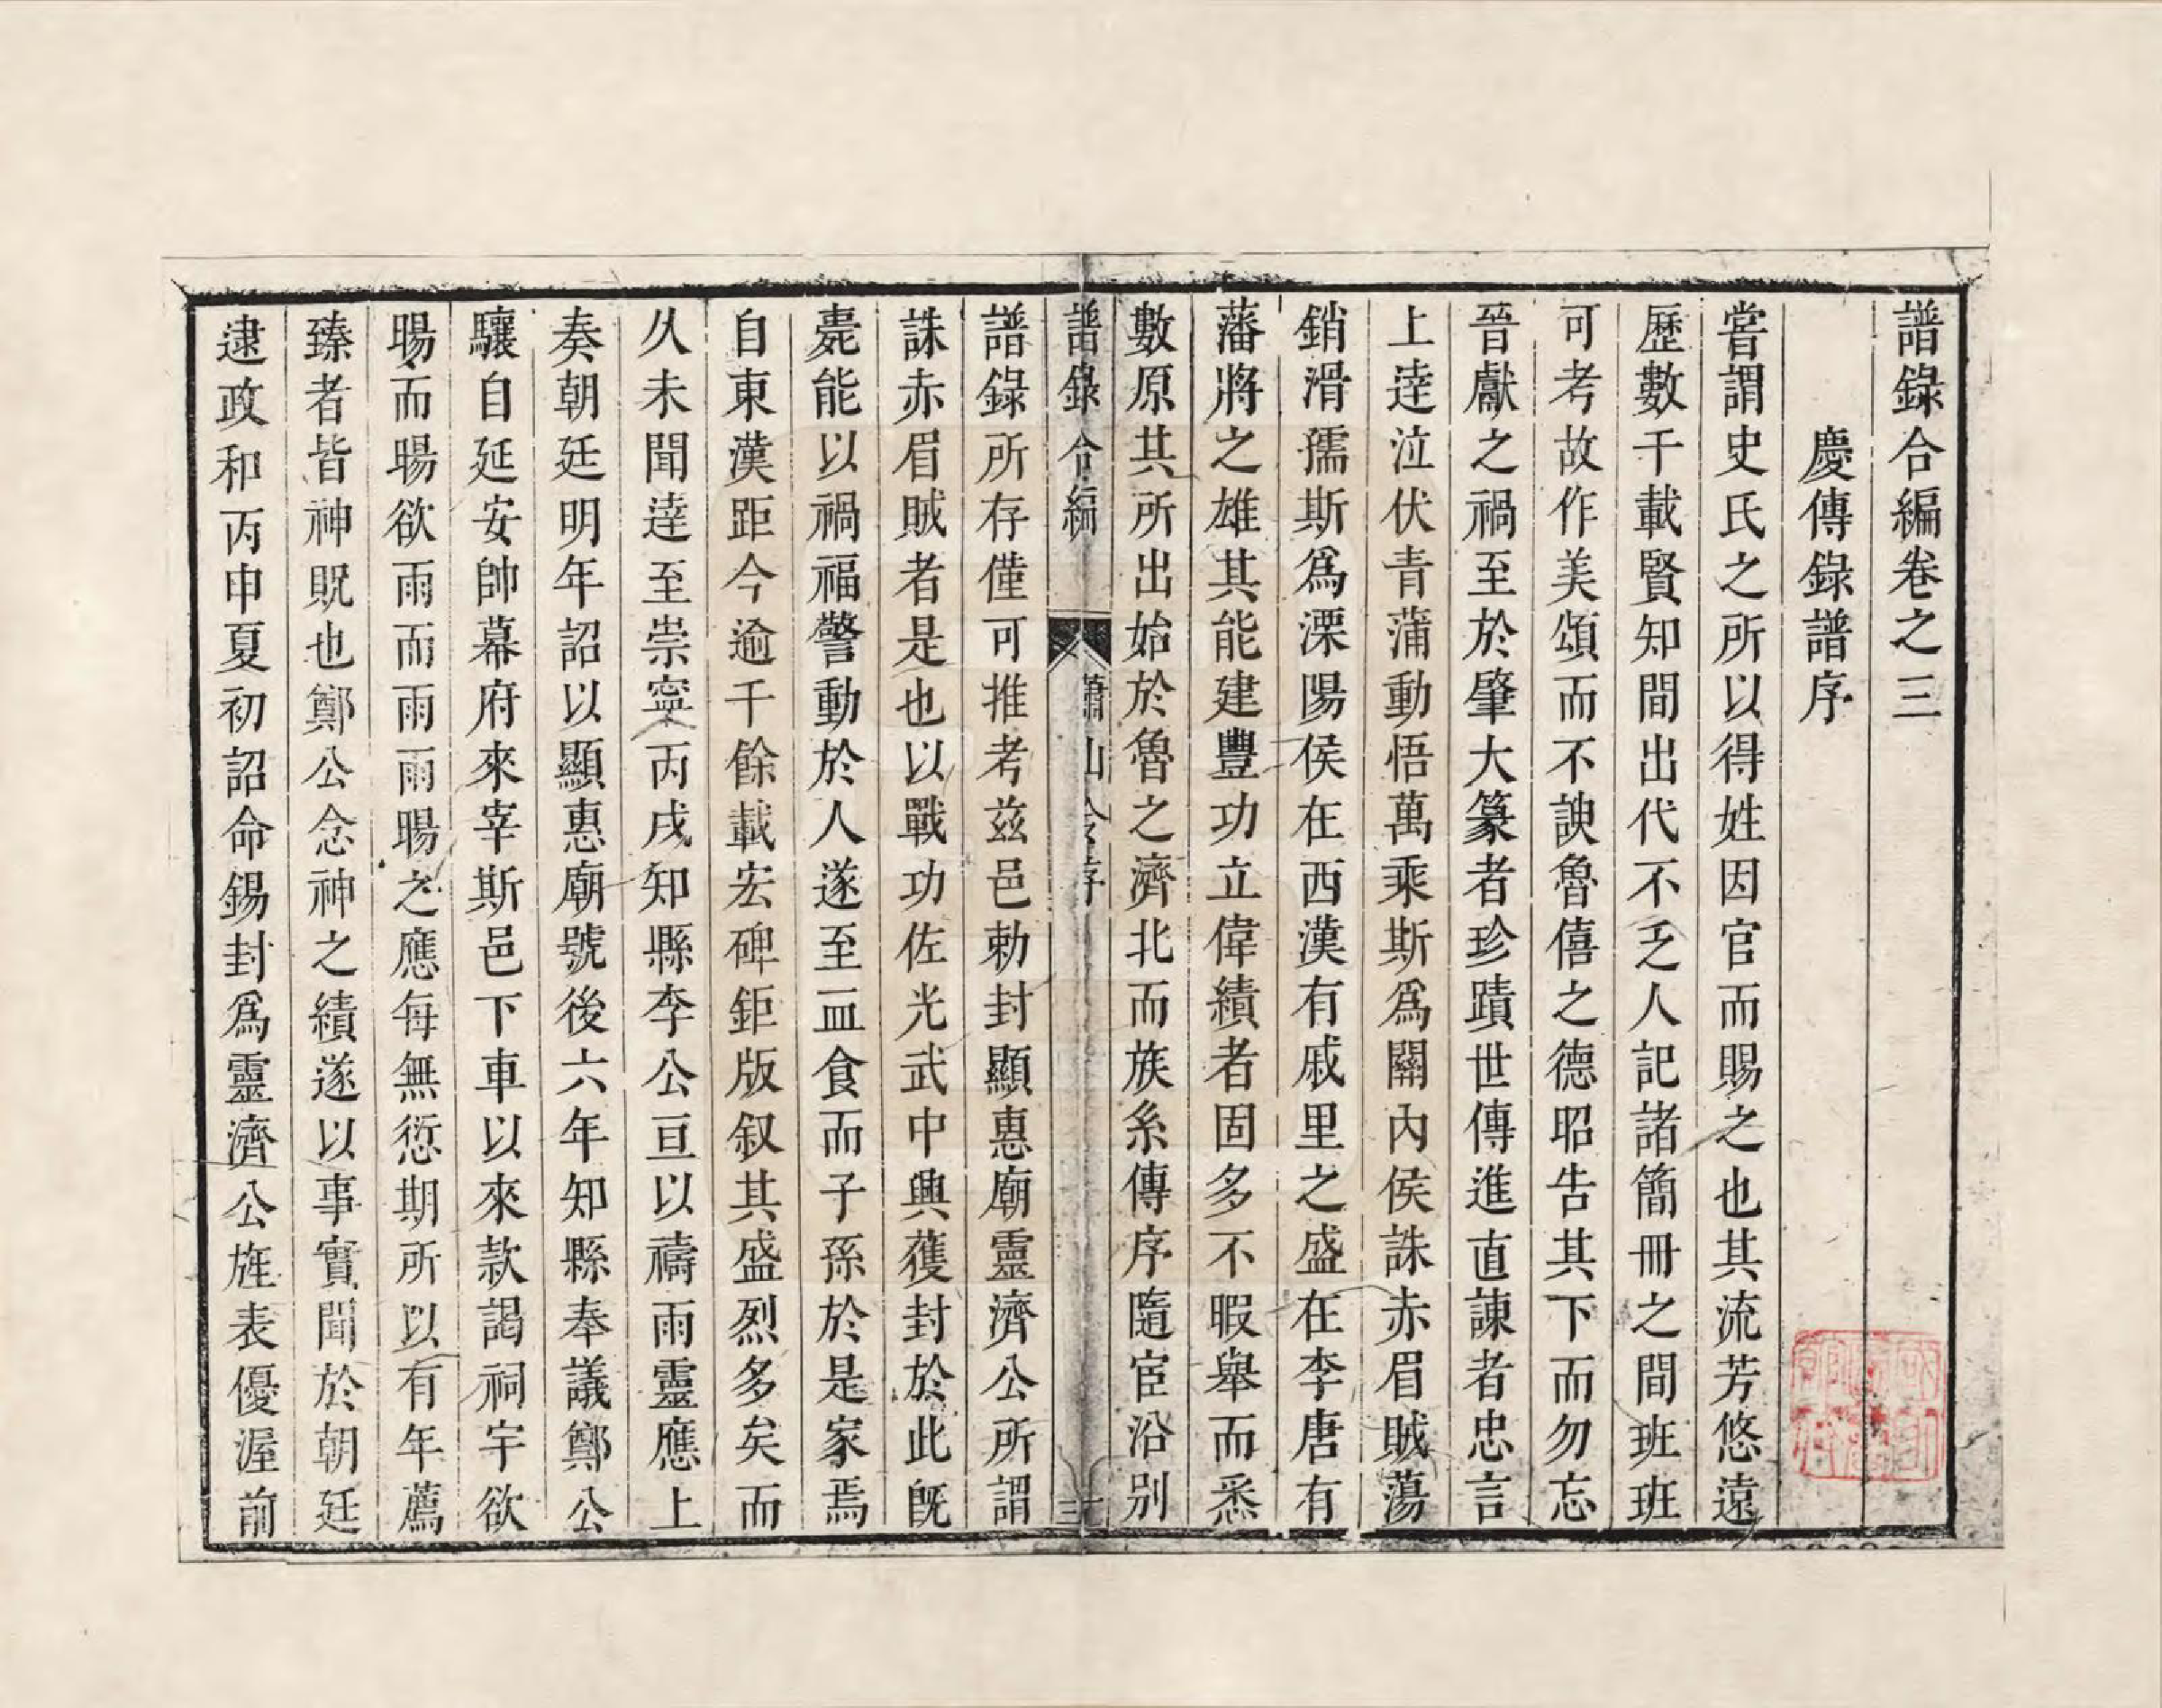 譜錄合編卷之三
慶傳錄譜序
嘗謂史氏之所以得姓因官而賜之也其流芳悠遠
歷數千載賢知間出代不乏人記諸簡冊之間班班
可考故作美頌而不諛魯僖之德昭告其下而勿忘
晉獻之禍至於肇大篆者珍蹟世傳進直諫者忠言
上逹泣伏青蒲動悟萬乘斯爲關內侯誅赤眉賊蕩
銷滑孺斯爲溧陽侯在西漢有戚里之盛在李唐有
藩將之雄其能建豐功立偉績者固多不暇舉而悉
數原其所出始於魯之濟北而族系傳序隨宦沿別
譜錄合編 蕭山 序
譜錄所存僅可推考兹邑勅封顯惠廟靈濟公所謂
誅赤眉賊者是也以戰功佐光武中興獲封於此旣
薨能以禍福警動於人遂至血食而子孫於是家焉
自東漢距今逾千餘載宏碑鉅版叙其盛烈多矣而
久未聞逹至崇寧丙戌知縣李公亘以禱雨靈應上
奏朝廷明年詔以顯惠廟號後六年知縣奉議鄭公
驤自延安帥幕府來宰斯邑下車以來款謁祠宇欲
暘而暘欲雨而雨雨暘之應每無愆期所以有年薦
臻者皆神貺也鄭公念神之績遂以事實聞於朝廷
逮政和丙申夏初詔命錫封爲靈濟公旌表優渥前